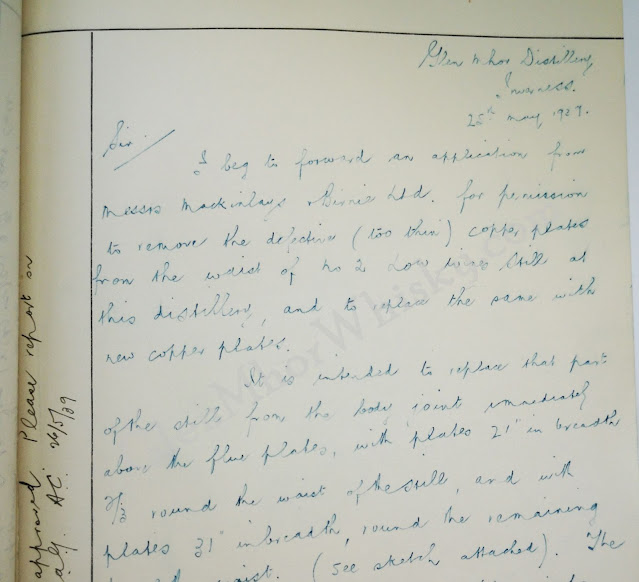 Glen Mhor Distillery
Inverness.
25th May 1939.
Sir.
I beg to forward an application from
Messrs Mackinlays & Birnie Ltd. for permission
to remove the defective (too thin) copper plates
from the waist of No 2 Low Wines Still at
this distillery, and to replace the same with
new copper plates.
It is intended to replace that part
of the still from the body joint immediately
above the flue plates, with plates 21" in breadth
round the waist of the still, and with
plates 31" in breadth, round the remaining
waist. (See sketch attached). The
approved Please report on
A.C. 26/5/39
MhorWhisky.com